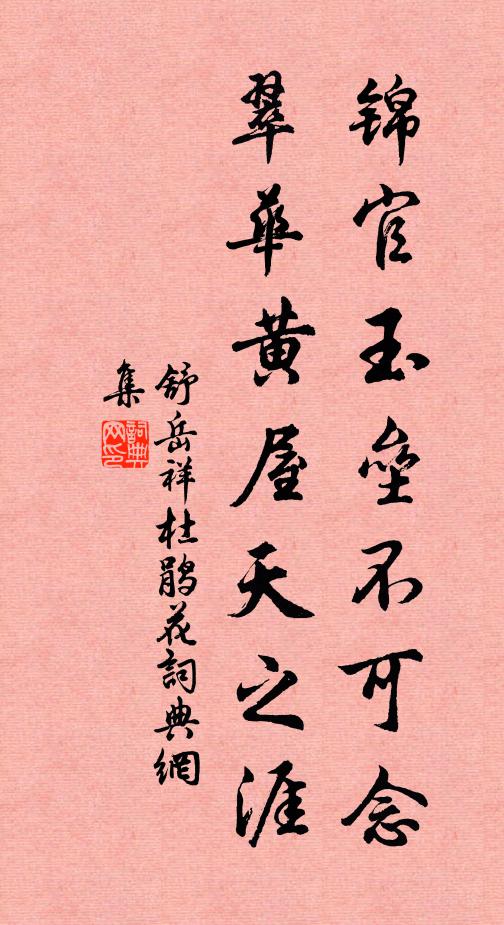 锦官玉垒不可念
翠华黄屋天之涯
舒岳祥杜鹃花詞典網
集
詞典
网印